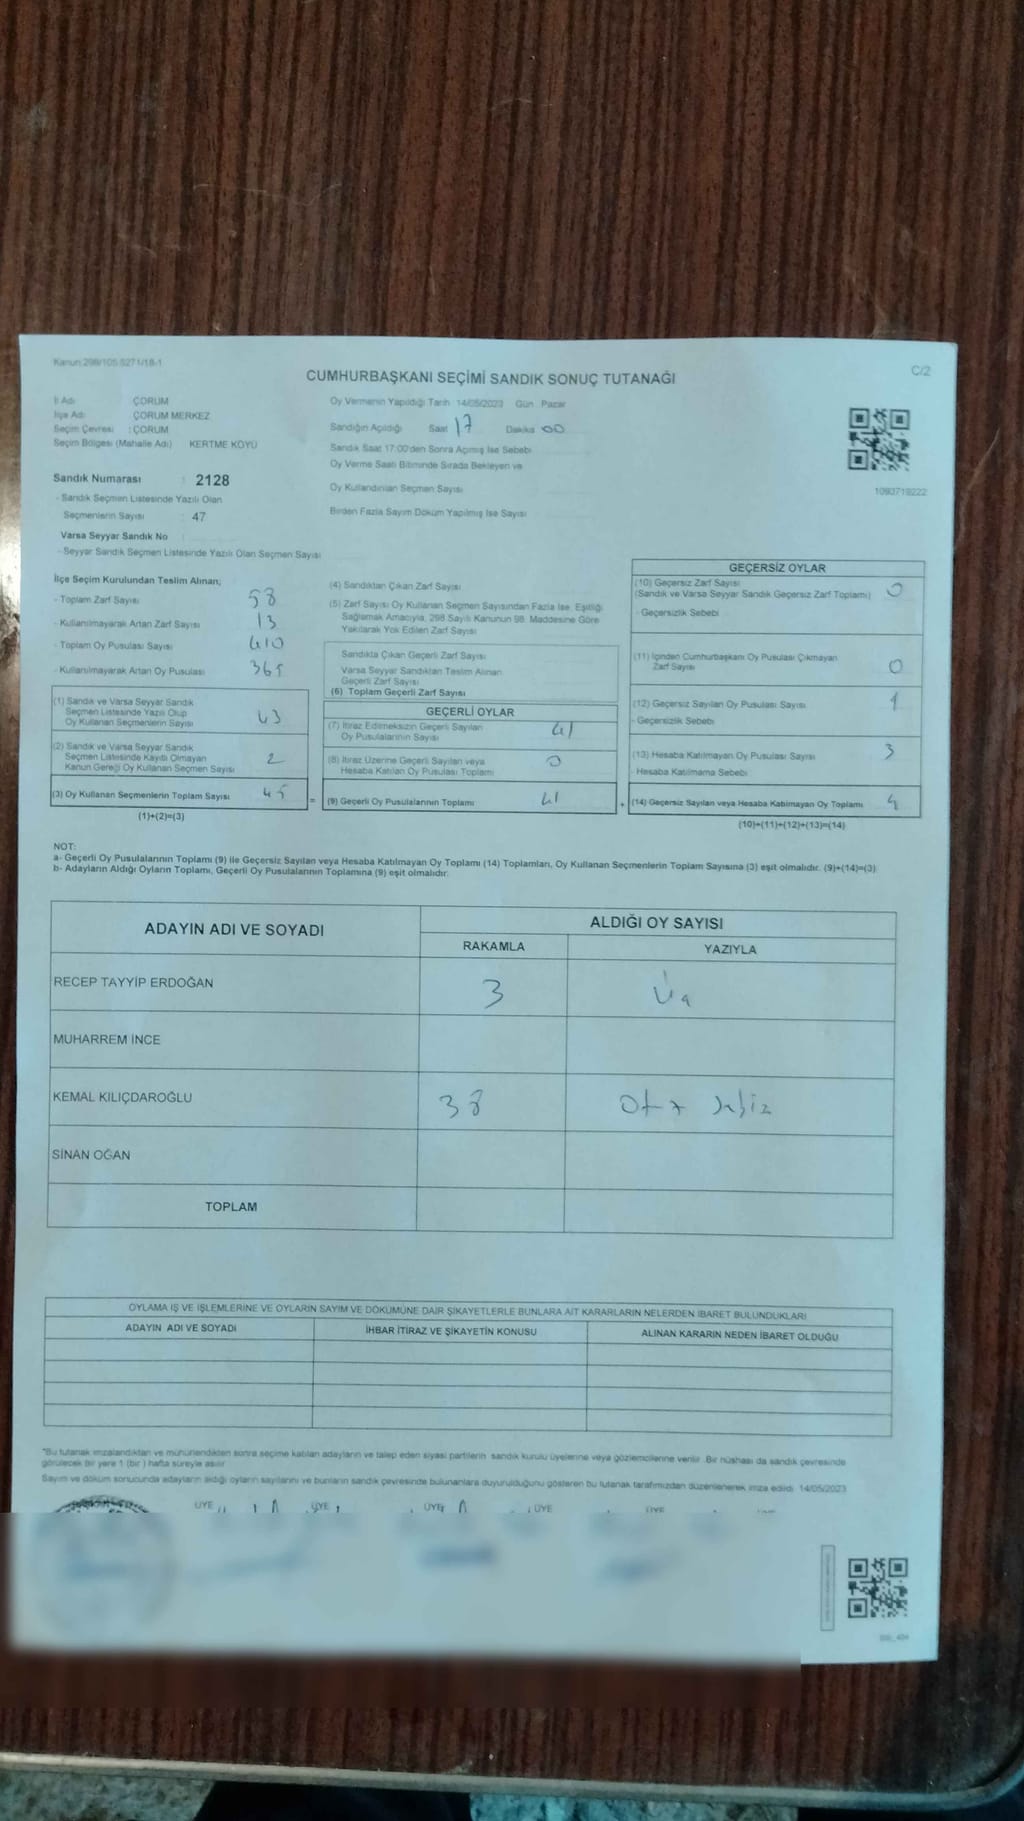 Kanun:298/105,5271/18-1
C/2
CUMHURBAŞKANI SEÇİMİ SANDIK SONUÇ TUTANAĞI
İl Adı ÇORUM
İlçe Adı ÇORUM MERKEZ
Seçim Çevresi : ÇORUM
Seçim Bölgesi (Mahalle Adı) KERTME KÖYÜ
Sandık Numarası : 2128
- Sandık Seçmen Listesinde Yazılı Olan
Seçmenlerin Sayısı : 47
Varsa Seyyar Sandık No :
- Seyyar Sandık Seçmen Listesinde Yazılı Olan Seçmen Sayısı
Oy Vermenin Yapıldığı Tarih 14/05/2023 Gün Pazar
Sandığın Açıldığı Saat 17 Dakika 00
Sandık Saat 17:00'den Sonra Açılmış İse Sebebi
Oy Verme Saati Bitiminde Sırada Bekleyen ve
Oy Kullandırılan Seçmen Sayısı
Birden Fazla Sayım Döküm Yapılmış İse Sayısı
1093719222
İlçe Seçim Kurulundan Teslim Alınan;
- Toplam Zarf Sayısı 58
- Kullanılmayarak Artan Zarf Sayısı 13
- Toplam Oy Pusulası Sayısı 410
- Kullanılmayarak Artan Oy Pusulası 365
(1) Sandık ve Varsa Seyyar Sandık
Seçmen Listesinde Yazılı Olup
Oy Kullanan Seçmenlerin Sayısı 43
(2) Sandık ve Varsa Seyyar Sandık
Seçmen Listesinde Kayıtlı Olmayan
Kanun Gereği Oy Kullanan Seçmen Sayısı 2
(3) Oy Kullanan Seçmenlerin Toplam Sayısı 45
(1)+(2)=(3)
(4) Sandıktan Çıkan Zarf Sayısı
(5) Zarf Sayısı Oy Kullanan Seçmen Sayısından Fazla İse, Eşitliği
Sağlamak Amacıyla, 298 Sayılı Kanunun 98. Maddesine Göre
Yakılarak Yok Edilen Zarf Sayısı
Sandıkta Çıkan Geçerli Zarf Sayısı
Varsa Seyyar Sandıktan Teslim Alınan
Geçerli Zarf Sayısı
(6) Toplam Geçerli Zarf Sayısı
GEÇERLİ OYLAR
(7) İtiraz Edilmeksizin Geçerli Sayılan
Oy Pusulalarının Sayısı 41
(8) İtiraz Üzerine Geçerli Sayılan veya
Hesaba Katılan Oy Pusulası Toplamı 0
= (9) Geçerli Oy Pusulalarının Toplamı 41
GEÇERSİZ OYLAR
(10) Geçersiz Zarf Sayısı 0
(Sandık ve Varsa Seyyar Sandık Geçersiz Zarf Toplamı)
- Geçersizlik Sebebi
(11) İçinden Cumhurbaşkanı Oy Pusulası Çıkmayan
Zarf Sayısı 0
(12) Geçersiz Sayılan Oy Pusulası Sayısı 1
- Geçersizlik Sebebi
(13) Hesaba Katılmayan Oy Pusulası Sayısı 3
Hesaba Katılmama Sebebi
+ (14) Geçersiz Sayılan veya Hesaba Katılmayan Oy Toplamı 4
(10)+(11)+(12)+(13)=(14)
NOT:
a- Geçerli Oy Pusulalarının Toplamı (9) ile Geçersiz Sayılan veya Hesaba Katılmayan Oy Toplamı (14) Toplamları, Oy Kullanan Seçmenlerin Toplam Sayısına (3) eşit olmalıdır. (9)+(14)=(3)
b- Adayların Aldığı Oyların Toplamı, Geçerli Oy Pusulalarının Toplamına (9) eşit olmalıdır.
ADAYIN ADI VE SOYADI
ALDIĞI OY SAYISI
RAKAMLA YAZIYLA
RECEP TAYYİP ERDOĞAN 3 Üç
MUHARREM İNCE
KEMAL KILIÇDAROĞLU 38 Otuz Sekiz
SİNAN OĞAN
TOPLAM
OYLAMA İŞ VE İŞLEMLERİNE VE OYLARIN SAYIM VE DÖKÜMÜNE DAİR ŞİKAYETLERLE BUNLARA AİT KARARLARIN NELERDEN İBARET BULUNDUKLARI
ADAYIN ADI VE SOYADI İHBAR İTİRAZ VE ŞİKAYETİN KONUSU ALINAN KARARIN NEDEN İBARET OLDUĞU
*Bu tutanak imzalandıktan ve mühürlendikten sonra seçime katılan adayların ve talep eden siyasi partilerin sandık kurulu üyelerine veya gözlemcilerine verilir. Bir nüshası da sandık çevresinde
görülecek bir yere 1 (bir ) hafta süreyle asılır
Sayım ve döküm sonucunda adayların aldığı oyların sayılarını ve bunların sandık çevresinde bulunanlara duyurulduğunu gösteren bu tutanak tarafımızdan düzenlenerek imza edildi. 14/05/2023
ÜYE ÜYE ÜYE ÜYE ÜYE